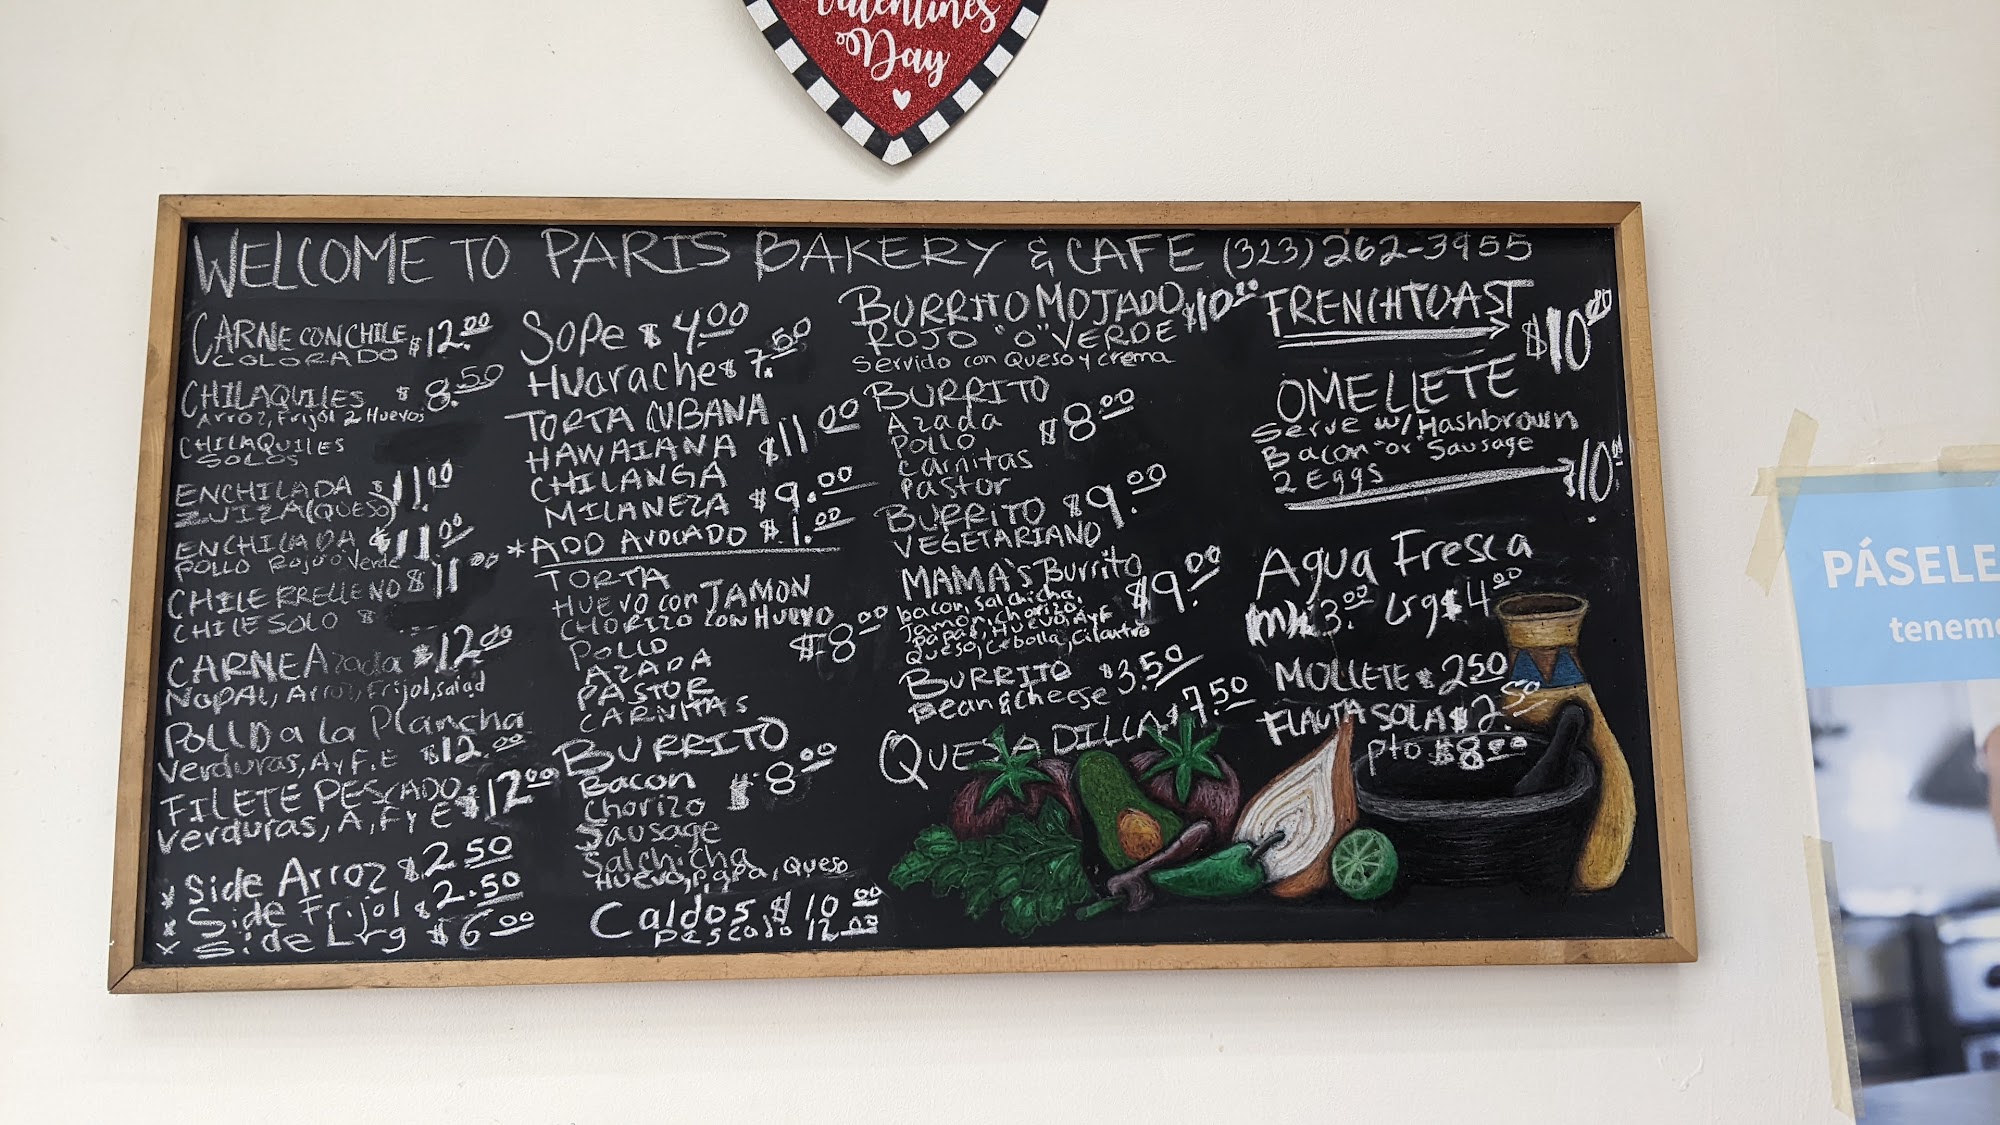 Valentines
Day
WELCOME TO PARIS BAKERY & CAFE (323) 262-3955
CARNE CON CHILE $12.00
COLORADO
CHILAQUILES $8.50
Arroz, Frijol 2 Huevos
CHILAQUILES
SOLOS
ENCHILADA $11.00
ZUIZA (QUESO)
ENCHILADA $11.00
POLLO Rojo o Verde
CHILE RRELLENO $11.00
CHILE SOLO $
CARNE Azada $12.00
Nopal, Arroz, Frijol, Salad
POLLO a la Plancha
Verduras, A y F. E $12.00
FILETE PESCADO $12.00
Verduras, A, F y E
x Side Arroz $2.50
x Side Frijol $2.50
x Side Lrg $6.00
Sope $4.00
Huarache $7.50
TORTA CUBANA
HAWAIANA $11.00
CHILANGA
MILANEZA $9.00
*ADD AVOCADO $1.00
TORTA
HUEVO con JAMON
CHORIZO CON HUEVO
POLLO $8.00
AZADA
PASTOR
CARNITAS
BURRITO
Bacon $8.00
Chorizo
Sausage
Salchicha
Huevo, papa, Queso
Caldos $10.00
Pescado 12.00
BURRITO MOJADO $10.00
ROJO "O" VERDE
Servido con Queso y crema
BURRITO
Azada $8.00
Pollo
Carnitas
Pastor
BURRITO $9.00
VEGETARIANO
MAMA'S Burrito
bacon, salchicha, $9.00
Jamon, chorizo,
papas, Huevo, AyF
Queso, Cebolla, Cilantro
BURRITO $3.50
Bean & cheese
QUESADILLA $7.50
FRENCH TOAST $10.00
OMELLETE
Serve w/ Hashbrown
Bacon "or" Sausage
2 Eggs $10.00
Agua Fresca
3.00 Lrg $4.00
MOLLETE $2.50
FLAUTA SOLA $2.50
pto $8.00
PÁSELE